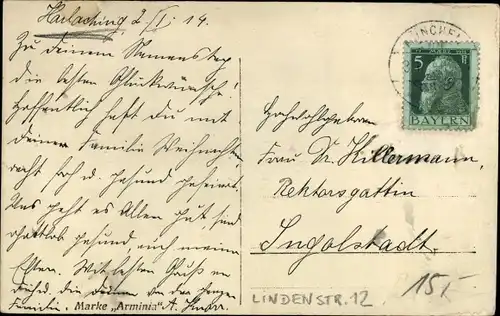 Harlaching 2/I. 14.
Zu Deinem Namenstag
die besten Glückwünsche!
Hoffentlich hast du mit
Deiner Familie Weihnacht
recht froh u. gesund gefeiert.
Uns geht es Allen gut, sind
gesund, auch meine
Eltern. Mit besten Gruß an
die von der ganzen
Familie. A. Knorr.
Marke „Arminia"
MÜNCHEN
5 5
BAYERN
Hochwohlgeboren
Frau Dr. Killermann,
Rektorsgattin
Ingolstadt.
LINDENSTR. 12
15,-